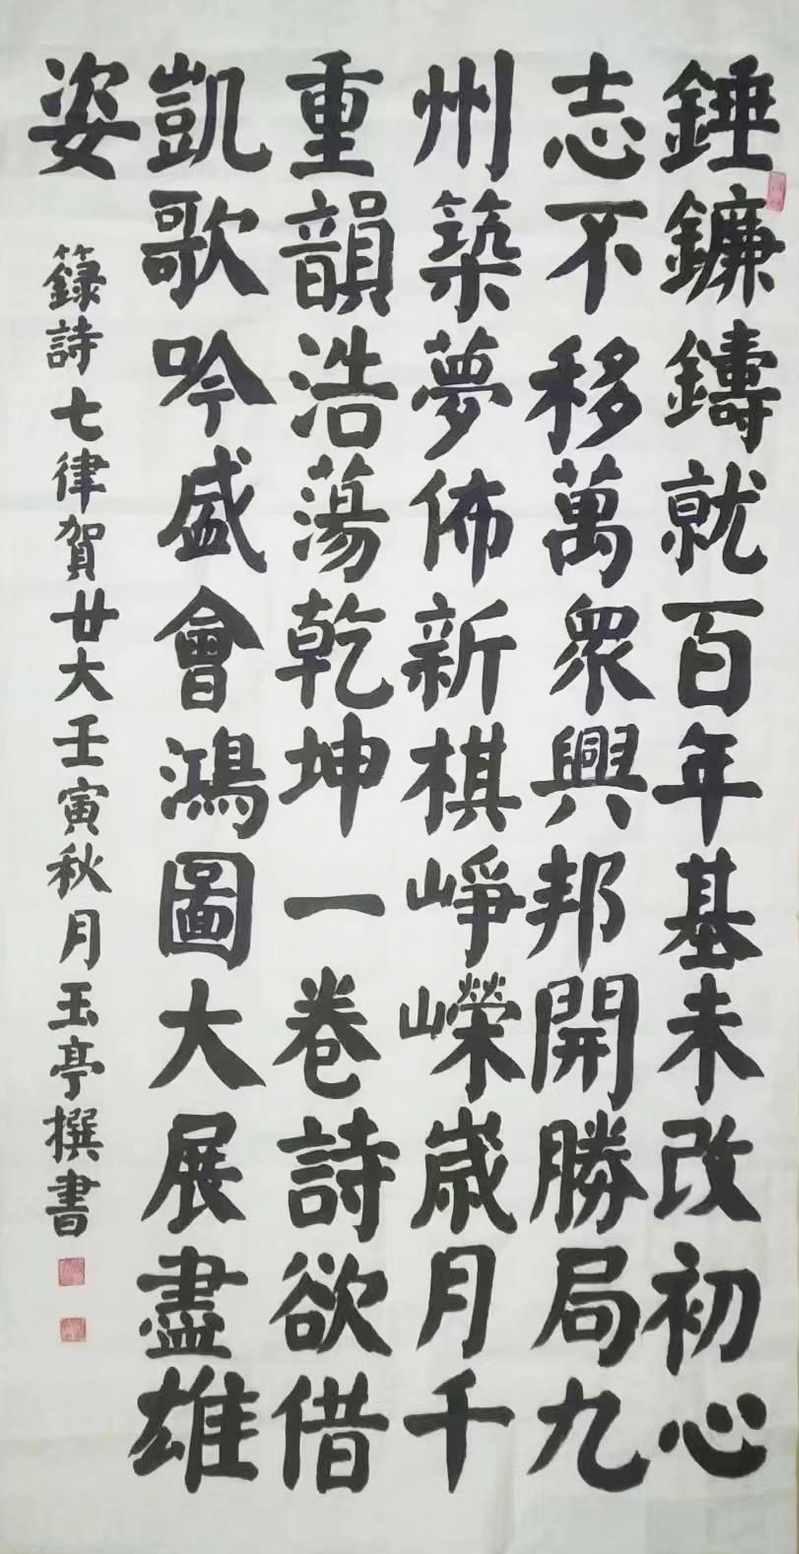 錘鐮鑄就百年基未改初心
志不移萬眾興邦開勝局九
州築夢佈新棋崢嶸歲月千
重韻浩蕩乾坤一卷詩欲借
凱歌吟盛會鴻圖大展盡雄
姿
籙詩七律賀廿大壬寅秋月玉亭撰書